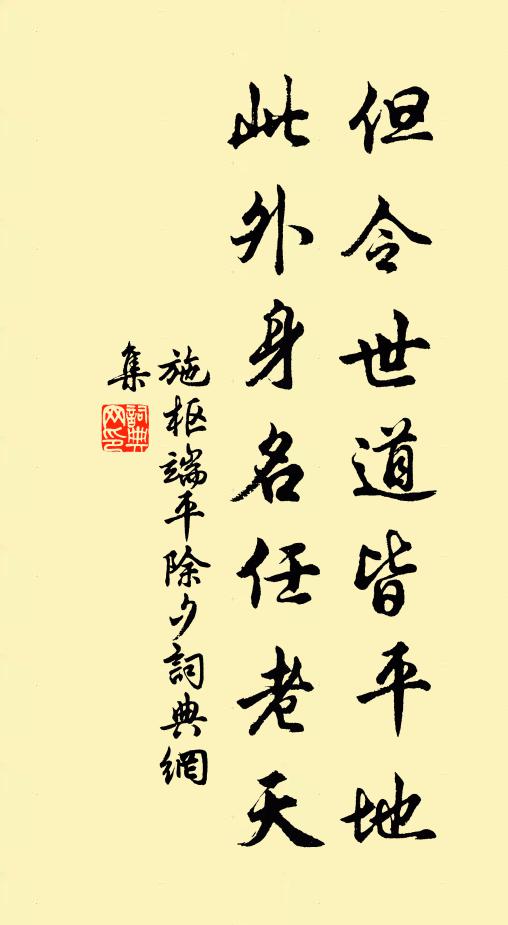 但令世道皆平地
此外身名任老天
施枢端平除夕詞典網
集
詞典网印